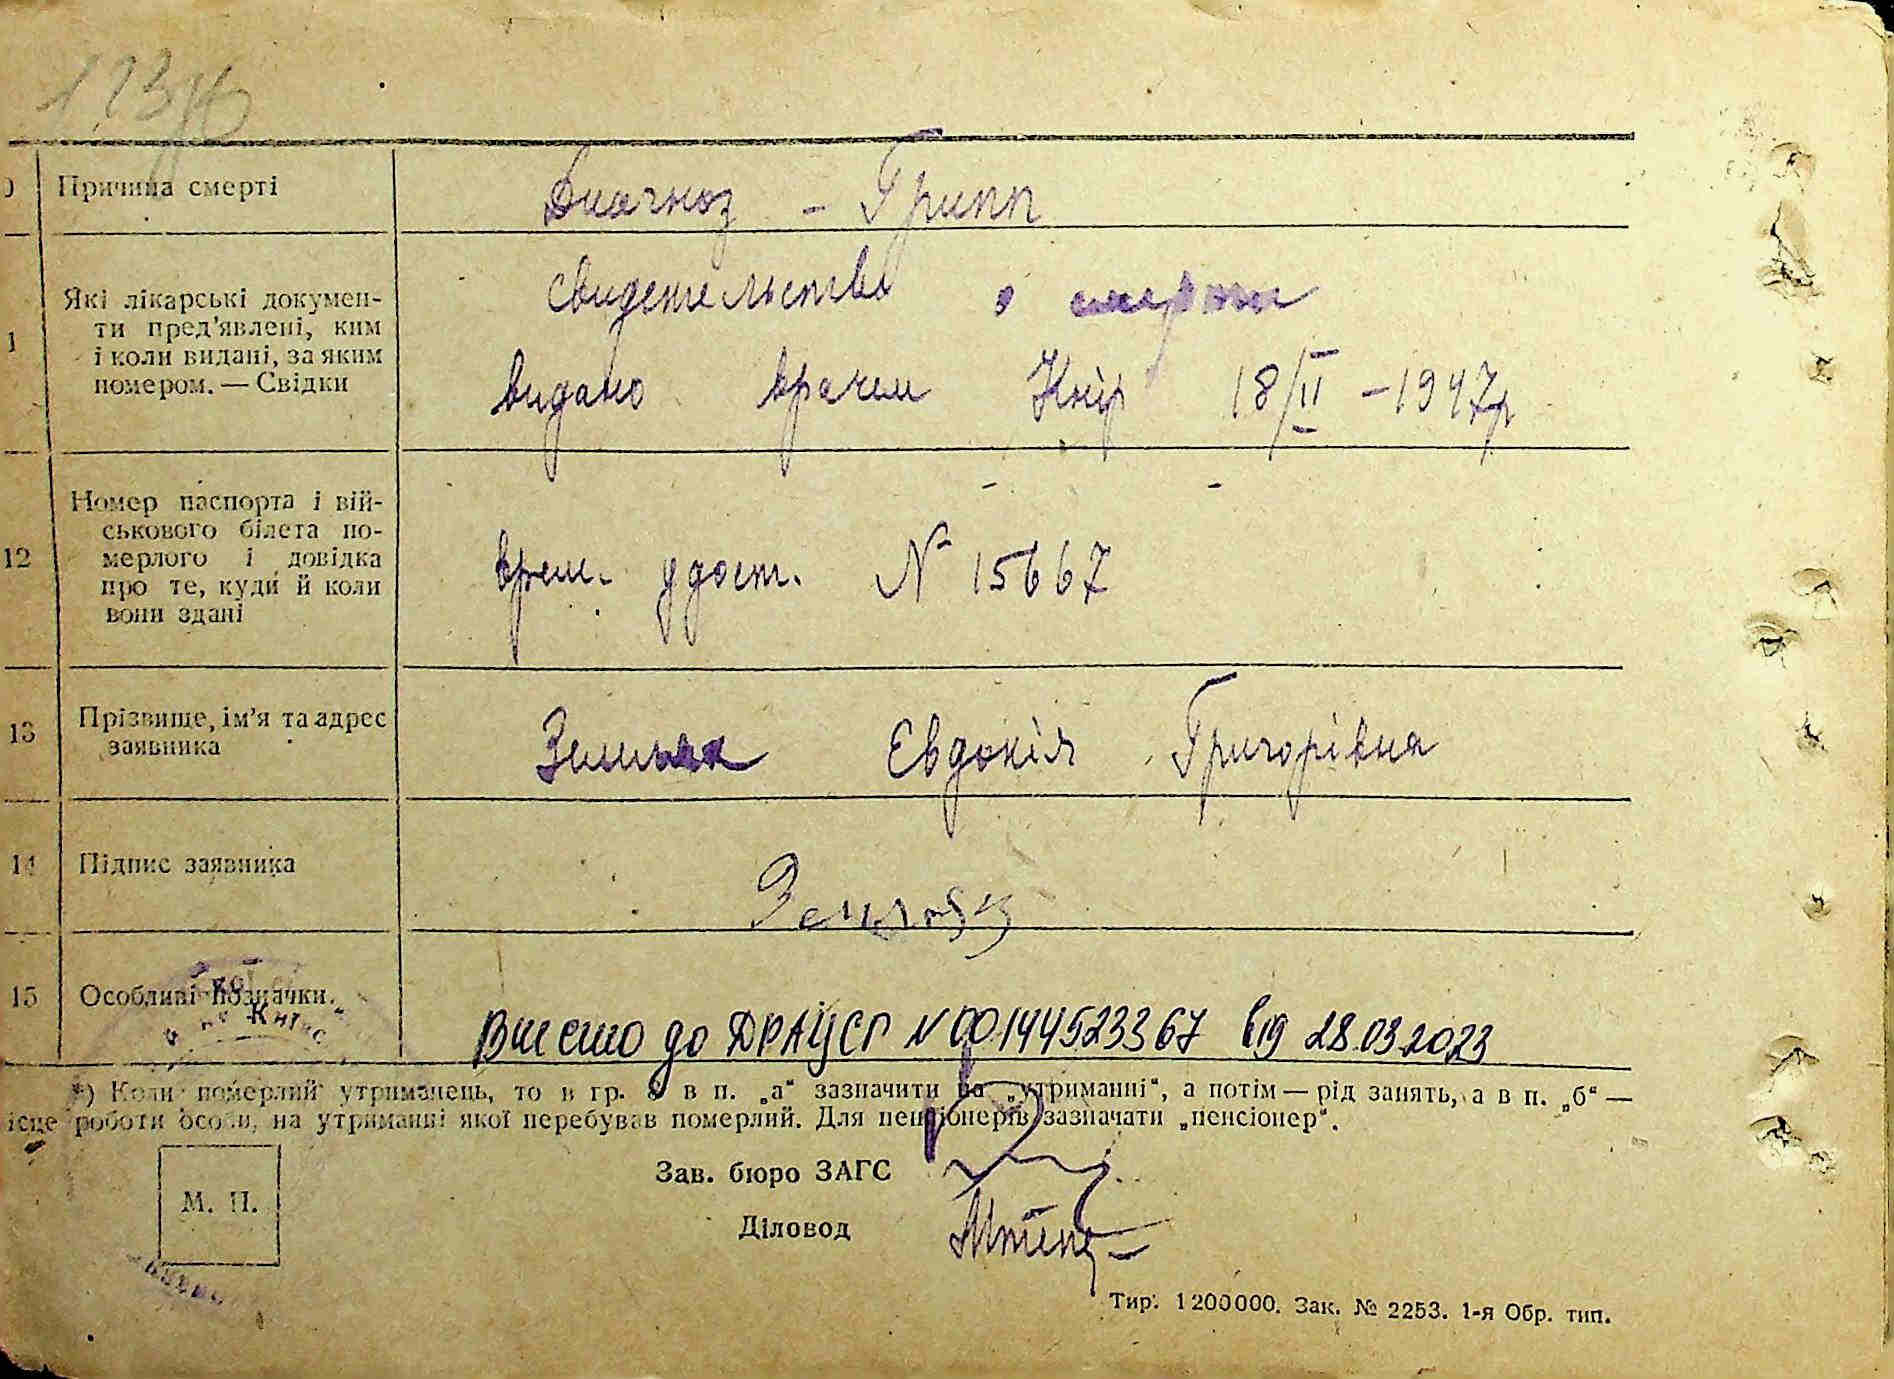 Причина смерті
Диагноз – Грипп
1
Які лікарські докумен-
ти пред'явлені, ким
і коли видані, за яким
номером. — Свідки
свидетельство о смерти
видано врачем 18/II – 1947р
12
Номер паспорта і вій-
ськового білета по-
мерлого і довідка
про те, куди й коли
вони здані
врем. удост. № 15667
13
Прізвище, ім'я та адрес
заявника
Євдокія Григорівна
14
Підпис заявника
15
Особливі позначки.
Внесено до ДРАЦСГ № 00144523367 від 28.03.2023
*) Коли померлий утриманець, то в гр. 8 в п. „а“ зазначити на „утриманні“, а потім — рід занять, а в п. „б“ —
ісце роботи особи, на утриманні якої перебував померлий. Для пенсіонерів зазначати „пенсіонер“.
Зав. бюро ЗАГС
М. П.
Діловод
Тир. 1200000. Зак. № 2253. 1-я Обр. тип.